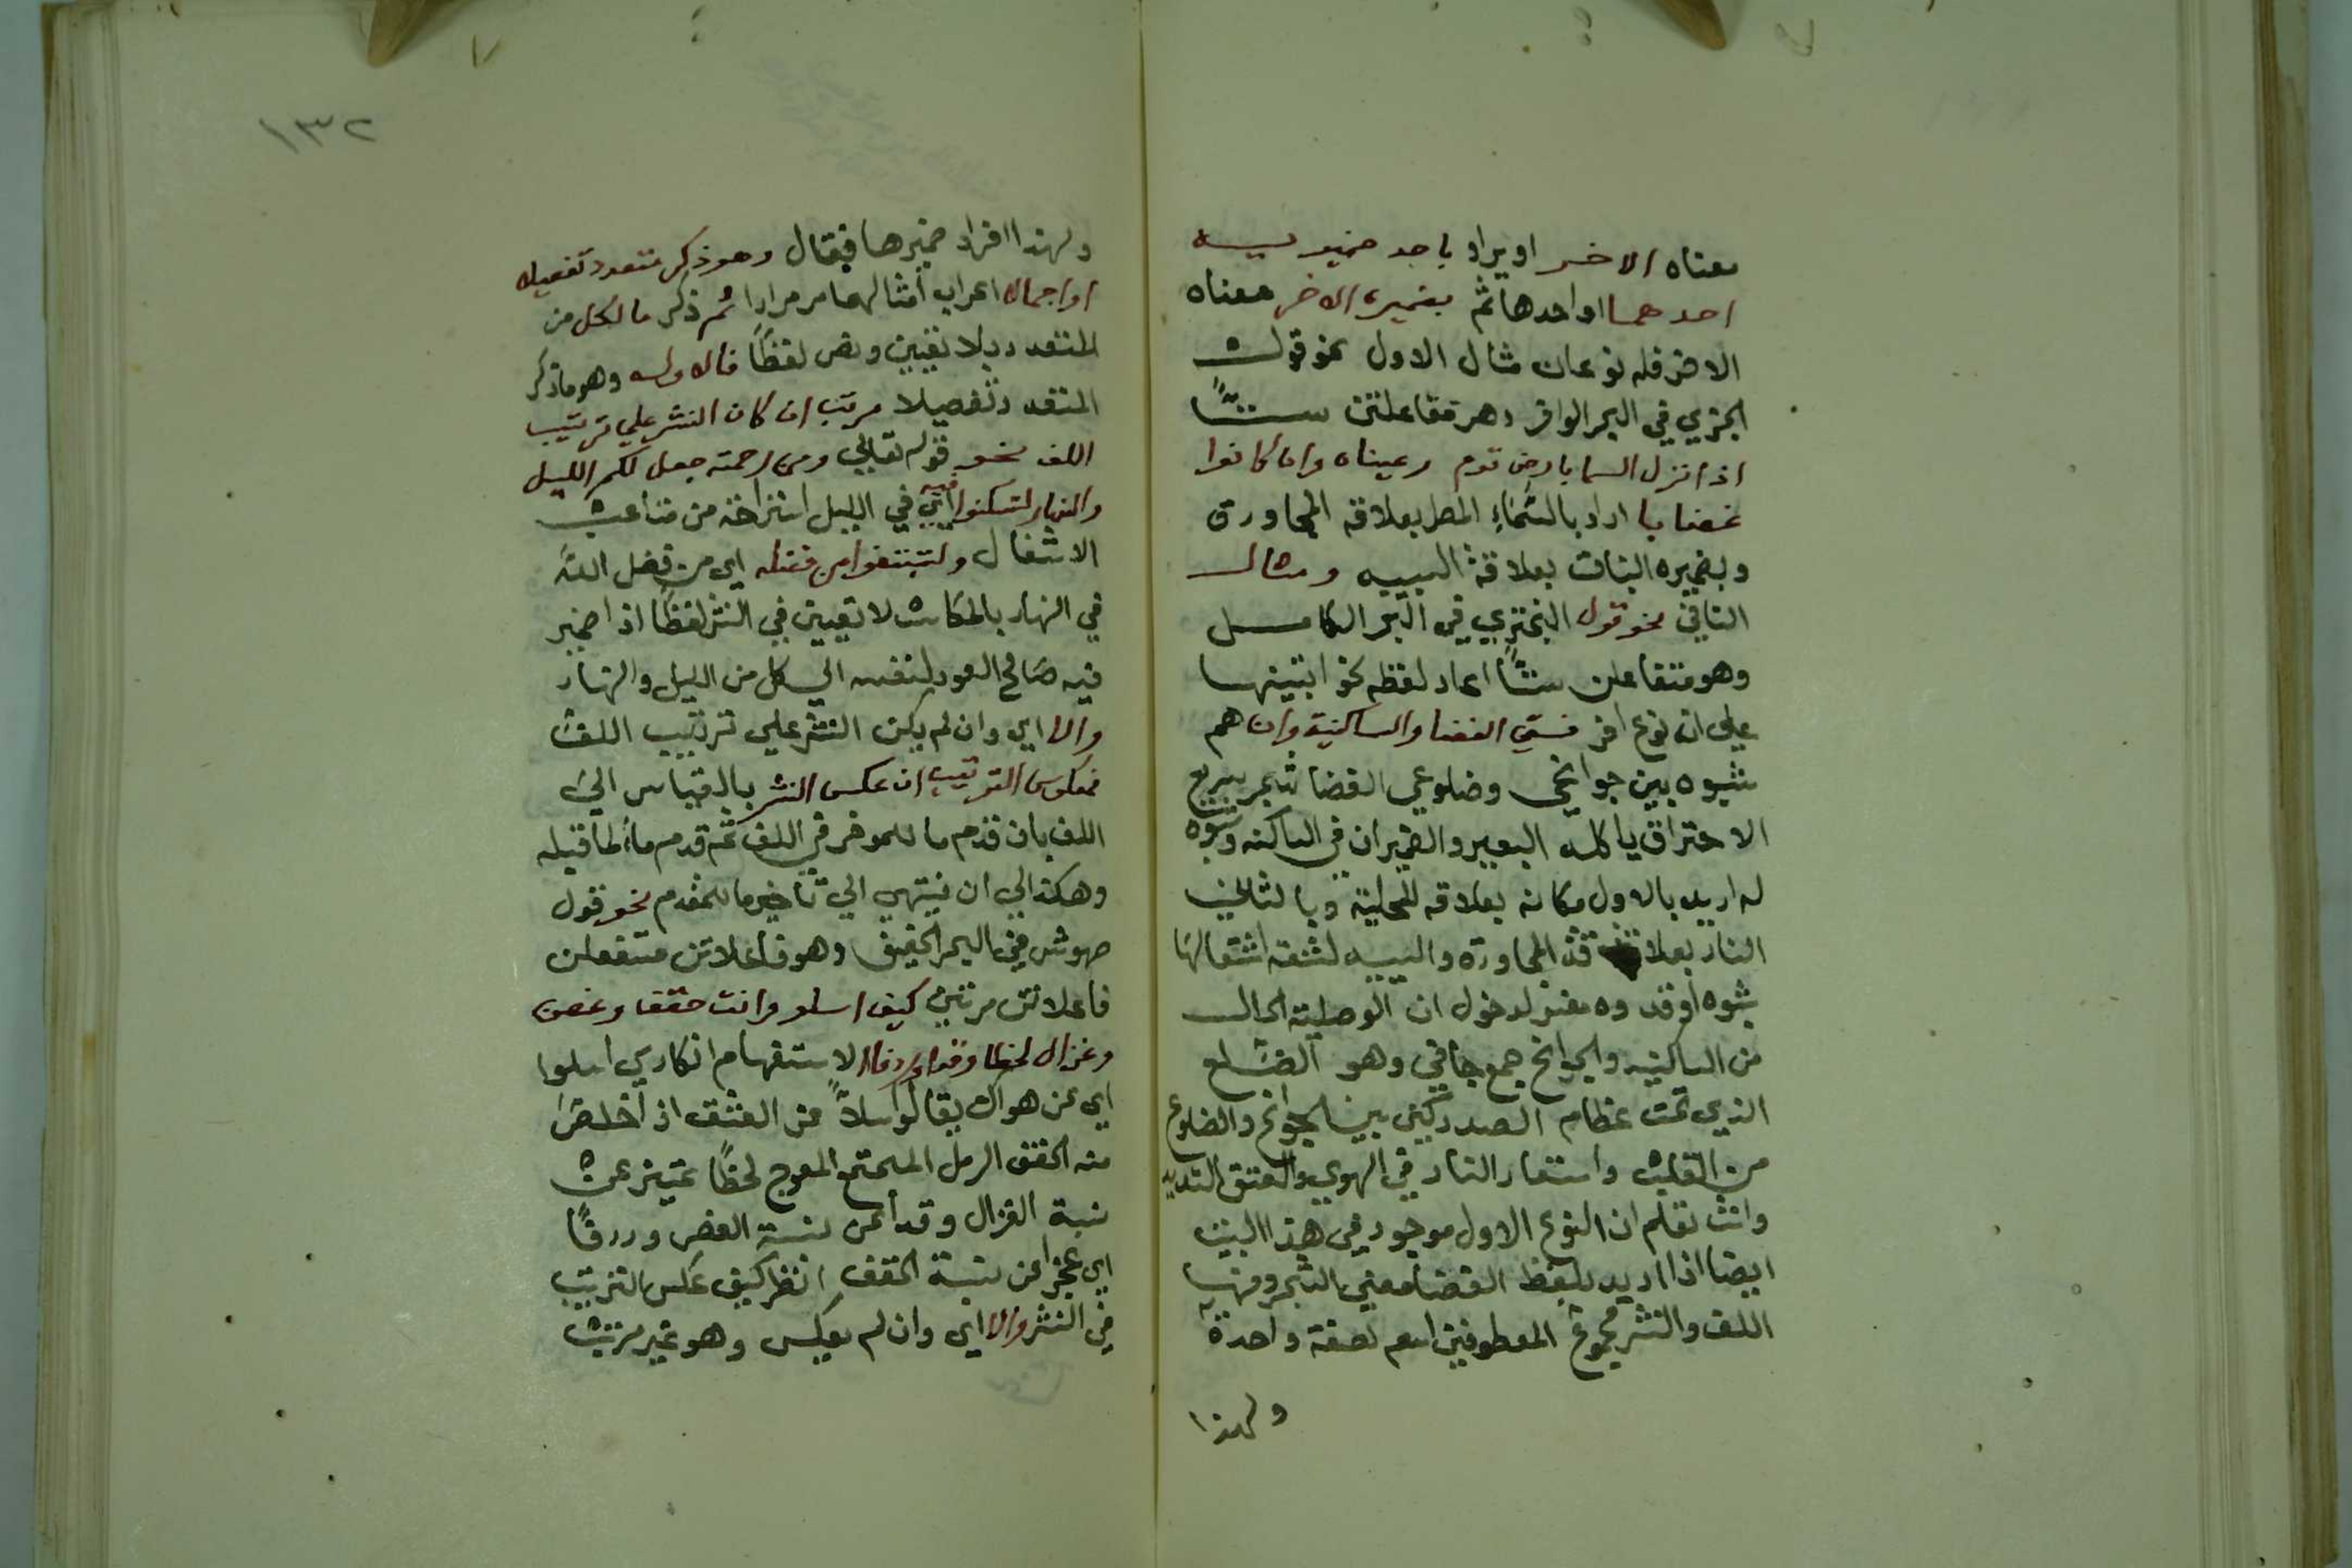 معناه الاخر او يراد باحد ضميريه
احدهما او احدها ثم بضميره الاخر معناه
الاخر فله نوعان مثال الاول نحو قول
الجزي في البحر الوافر وهو مفاعلتن ستًّا
اذا نزل السما بارض قوم رعيناه وان كانوا
غضابا اراد بالسّماءِ المطر بعلاقة المجاورة
وبضميره النبات بعلاقة السببيه ومثال
الثاني نحو قول البحتري في البحر الكامل
وهو متفاعلن ستًّا اعاد لفظه نحو
على ان نوع اخر فسقى الغضا والساكنيه وان هم
شبوه بين جوانحي وضلوعي الغضا شجر سريع
الاحتراق ياكله البعير والضميران في الساكنه وشبوه
له اريد بالاول مكانه بعلاقه المحلية وبالثاني
النار بعلاقة المجاورة والسببيه لشقه اشتعالها
شبوه اوقدوه مفيز لدخول ان الوصلية الحال
من الساكنيه والجوانح جمع جانحي وهو الضلع
الذي تحت عظام الصدر بين الجوانح والضلوع
من القلب واستعار النار في الهوي والعشق الشديد
وانت تعلم ان النوع الاول موجود في هذا البيت
ايضا اذا اريد بلفظ الغضا معني الشجر ومنها
اللف والنشر مجموع المعطوفين اسم لصفة واحدة
ولهذا
١٣٢
ولهذا افراد ضميرها فقال وهو ذكر متعدد تفصيلا
او اجمالا اعراب أمثالهما مر مرارا ثم ذكر ما لكل من
المتعدد بلا تعيين ونص لفظًا فالاول وهو ما ذكر
المتعدد تفصيلا مرتب ان كان النشر علي ترتيب
اللف نحو قوله تعالي ومن رحمته جعل لكم الليل
والنهار لتسكنوا فيه أي في الليل استراحة من متاعب
الاشغال ولتبتغوا من فضله اي من فضل الله
في النهار بالمكاسب لا تعيين في النشر لفظًا اذ ضمير
فيه صَالح العود لنفسه الي كل من الليل والنهار
والا اي وان لم يكن النشر علي ترتيب اللف
فمعكوس الترتيب ان عكس النشر بالقياس الي
اللف بان قدم ما للموخر في اللف ثم قدم ما لما قبله
وهكذا الي ان ينتهي الي تاخير ما للمقدم نحو قول
حيوش في البحر الخفيف وهو فاعلاتن مستفعلن
فاعلاتن مرتين كيف اسلو وانت حقف وغصن
وغزال لحظا وقدا وردفا الاستفهام انكاري اسلوا
اي عن هواك يقال سلا من العشق اذا خلص
منه الحقف الرمل المجتمع المعوج لحظًا تمييز عن
نسبة الغزال وقدا عن نسبة الغصن وردفًا
اي عجزا عن نسبة الحقف انظر كيف عكس الترتيب
في النشر والا اي وان لم يعكس وهو غير مرتب